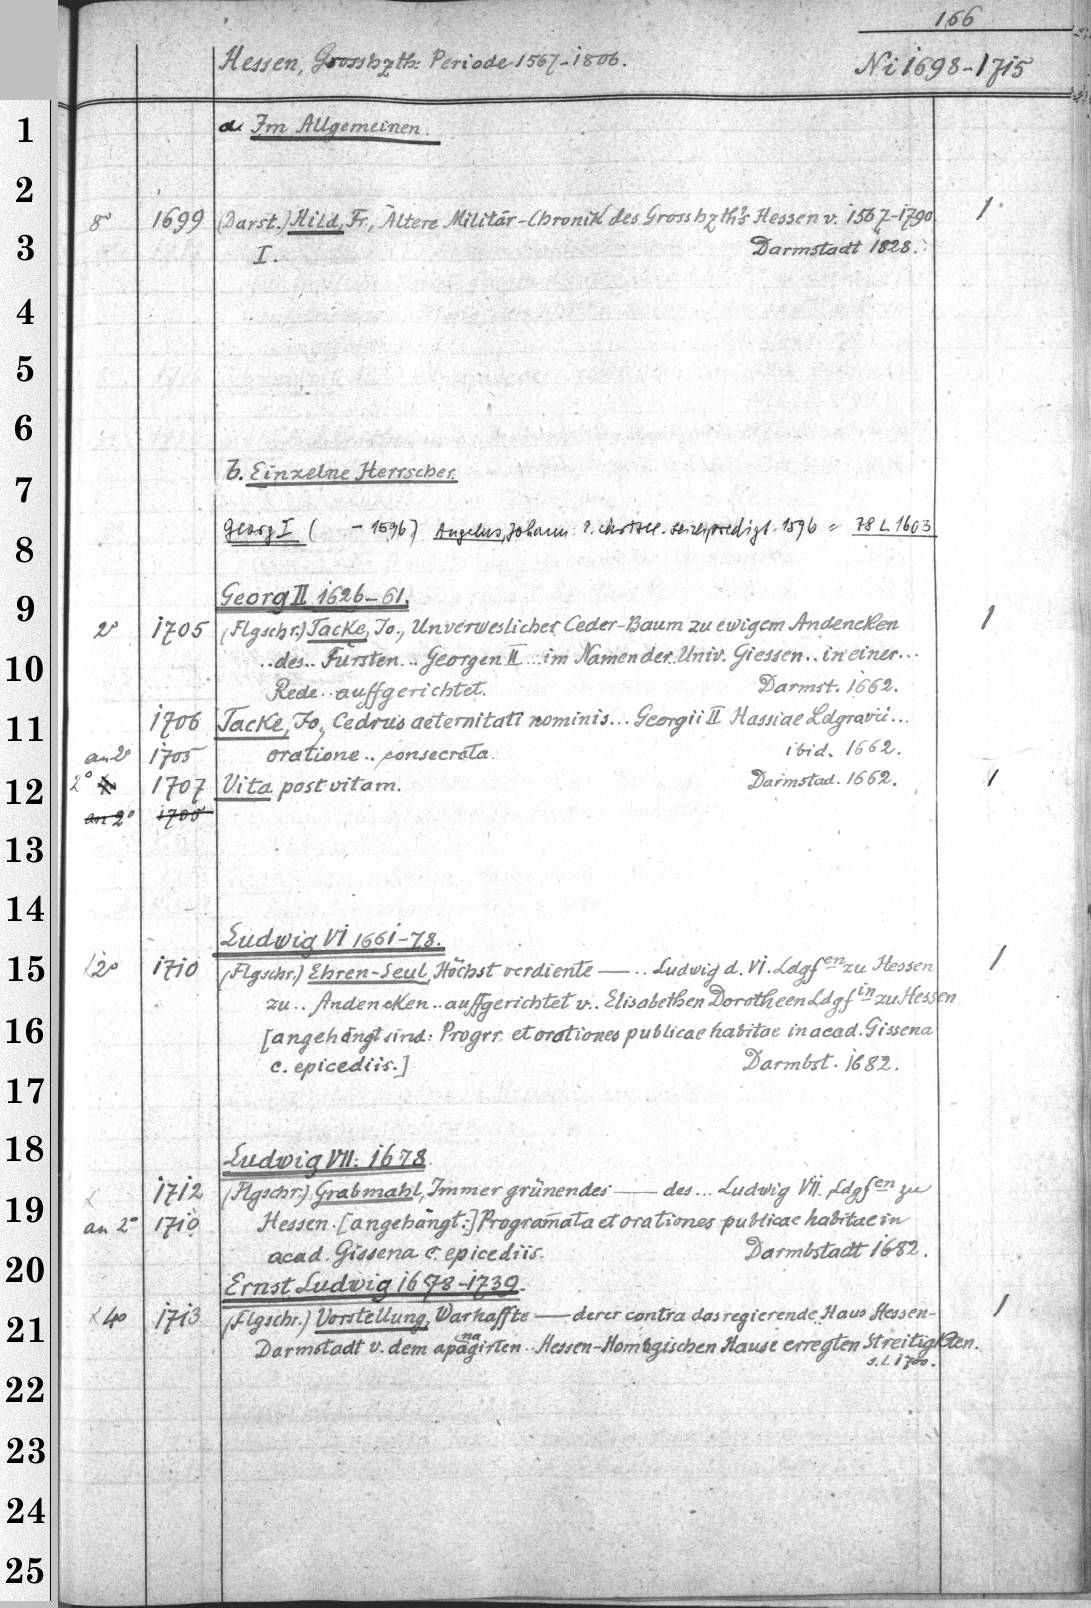 166
Hessen, Grosshzth: Periode 1567-1806. Ni 1698-1715
1 a. Im Allgemeinen.
2
8° 1699 (Darst.) Hild, Fr., Ältere Militär-Chronik des Grosshzth's Hessen v. 1567-1790 1.
3 I. Darmstadt 1828.
4
5
6
b. Einzelne Herrscher.
7
8 Georg I ( - 1596) Angelus, Johann: 1596 = 78 L 1603
9 Georg II 1626-61.
2° 1705 (Flgschr.) Tacke, Jo., Unverweslicher Ceder-Baum zu ewigem Andencken 1
10 ..des.. Fürsten... Georgen II ... im Namen der Univ. Giessen.. in einer...
Rede.. auffgerichtet. Darmst. 1662.
11 1706 Tacke, Jo, Cedrus aeternitati nominis... Georgii II Hassiae Ldgravii...
an 2° 1705 oratione.. consecrata. ibid. 1662.
12 2° 1707 Vita post vitam. Darmstad. 1662. 1
an 2° 1705
13
14
Ludwig VI 1661-78.
15 2° 1710 (Flgschr.) Ehren-Seul, Höchst verdiente — .. Ludwig d. VI. Ldgfen zu Hessen 1
zu.. Andencken.. auffgerichtet v.. Elisabethen Dorotheen Ldgfin zu Hessen
16 [angehängt sind: Progrr. et orationes publicae habitae in acad. Gissena
c. epicediis.] Darmbst. 1682.
17
18 Ludwig VII. 1678
1712 (Flgschr.) Grabmahl, Immer grünendes — des... Ludwig VII. Ldgfen zu
19 an 2° 1710 Hessen. [angehängt:] Programata et orationes publicae habitae in
acad. Gissena c. epicediis. Darmbstadt 1682.
20 Ernst Ludwig 1678-1739.
4° 1713 (Flgschr.) Vorstellung, Warhaffte — derer contra das regierende Haus Hessen- 1
21 Darmstadt v. dem apanagirten Hessen-Hombgischen Hause erregten Streitigkten.
s.l. 1700.
22
23
24
25